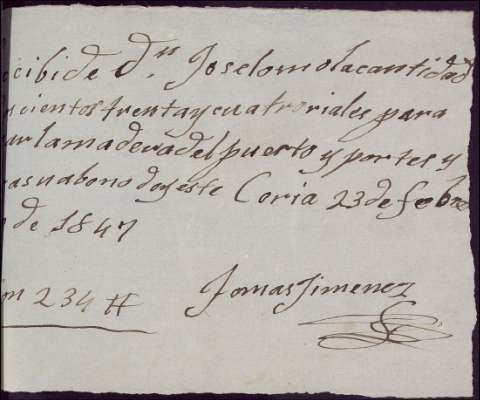 cibi de Dn Joselomo la cantidad
scientos trenta y cuatro riales para
ar la madera del puerto y portes y
ra su abono doy este Coria 23 de febro
de 1847
on 234 #
Tomas Jimenez